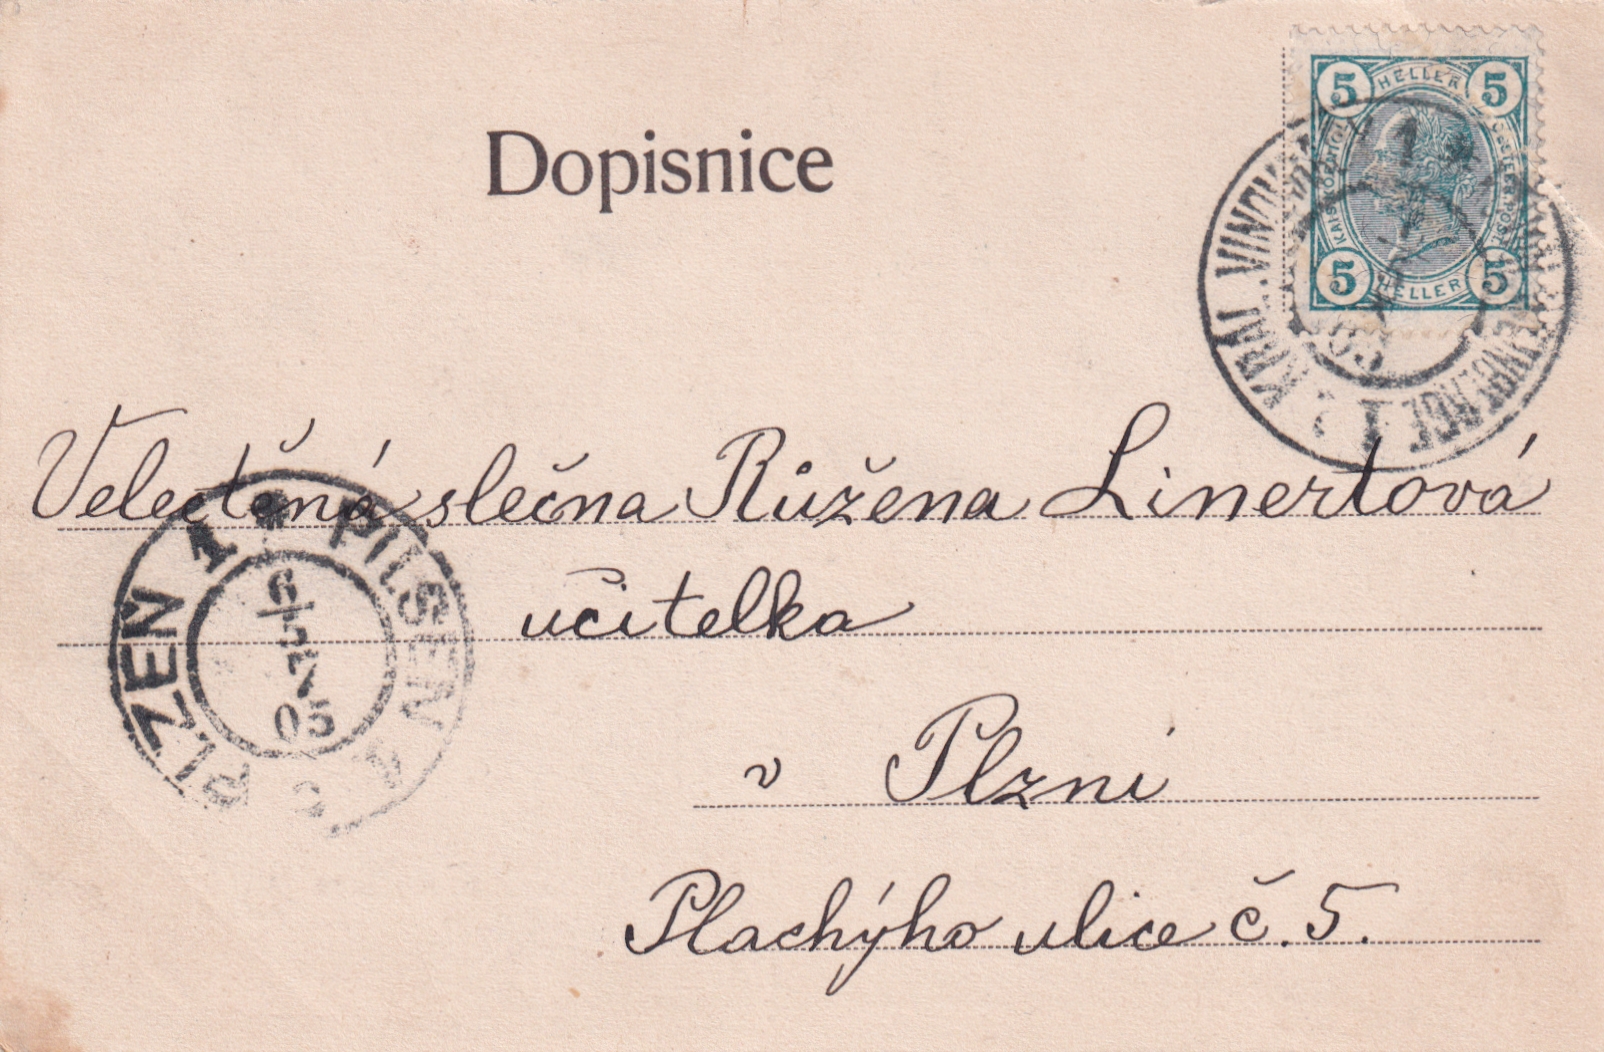 Dopisnice
5 HELLER 5
KAIS. KOENIGL. OESTERR. POST
5 HELLER 5
KRÁL. VINOHRADY 1
Velectěná slečna Růžena Linertová
učitelka
v Plzni
Plachýho ulice č. 5.
PLZEŇ 1 * PILSEN
6
05